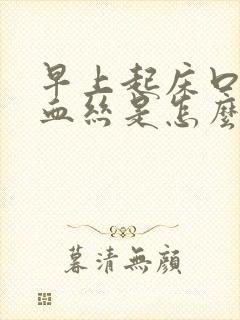 早上起床口
血丝是怎麼
暮清無顔